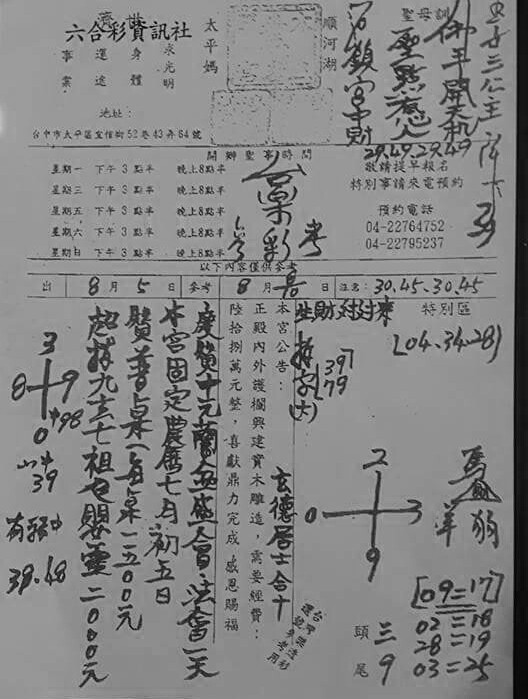 六合彩資訊社
濟世
事業
運途
身體
求光明
太平媽
順河湖
聖母訓
地址:
台中市太平區宜佰街52巷43弄64號
29.49.29.49
39
開辦聖事時間
星期一 下午3點半 晚上8點半
星期三 下午3點半 晚上8點半
星期五 下午3點半 晚上8點半
星期六 下午3點半 晚上8點半
星期日 下午3點半 晚上8點半
敬請提早報名
特別事請來電預約
預約電話
04-22764752
04-22795237
以下內容僅供參考
出 8月5日 參考 8月
日 注名: 30.45.30.45
生財對對來
特別區
(04.34.28)
397
179
本宮公告:
正殿內外護欄興建實木雕造,需要經費:
陸拾捌萬元整,喜獻鼎力完成 感恩賜福
玄德居士合十
慶贊中元蘭盆盛會法會一天
本宮固定農曆七月初五日
贊普桌一每桌一五00元
超拔九玄七祖 嬰靈二000元
3
8 9
0
中98
39
38.48
2
0 3
9
馬
羊 狗
[09=17]
02=18
28=19
03=25
頭 三
尾 9